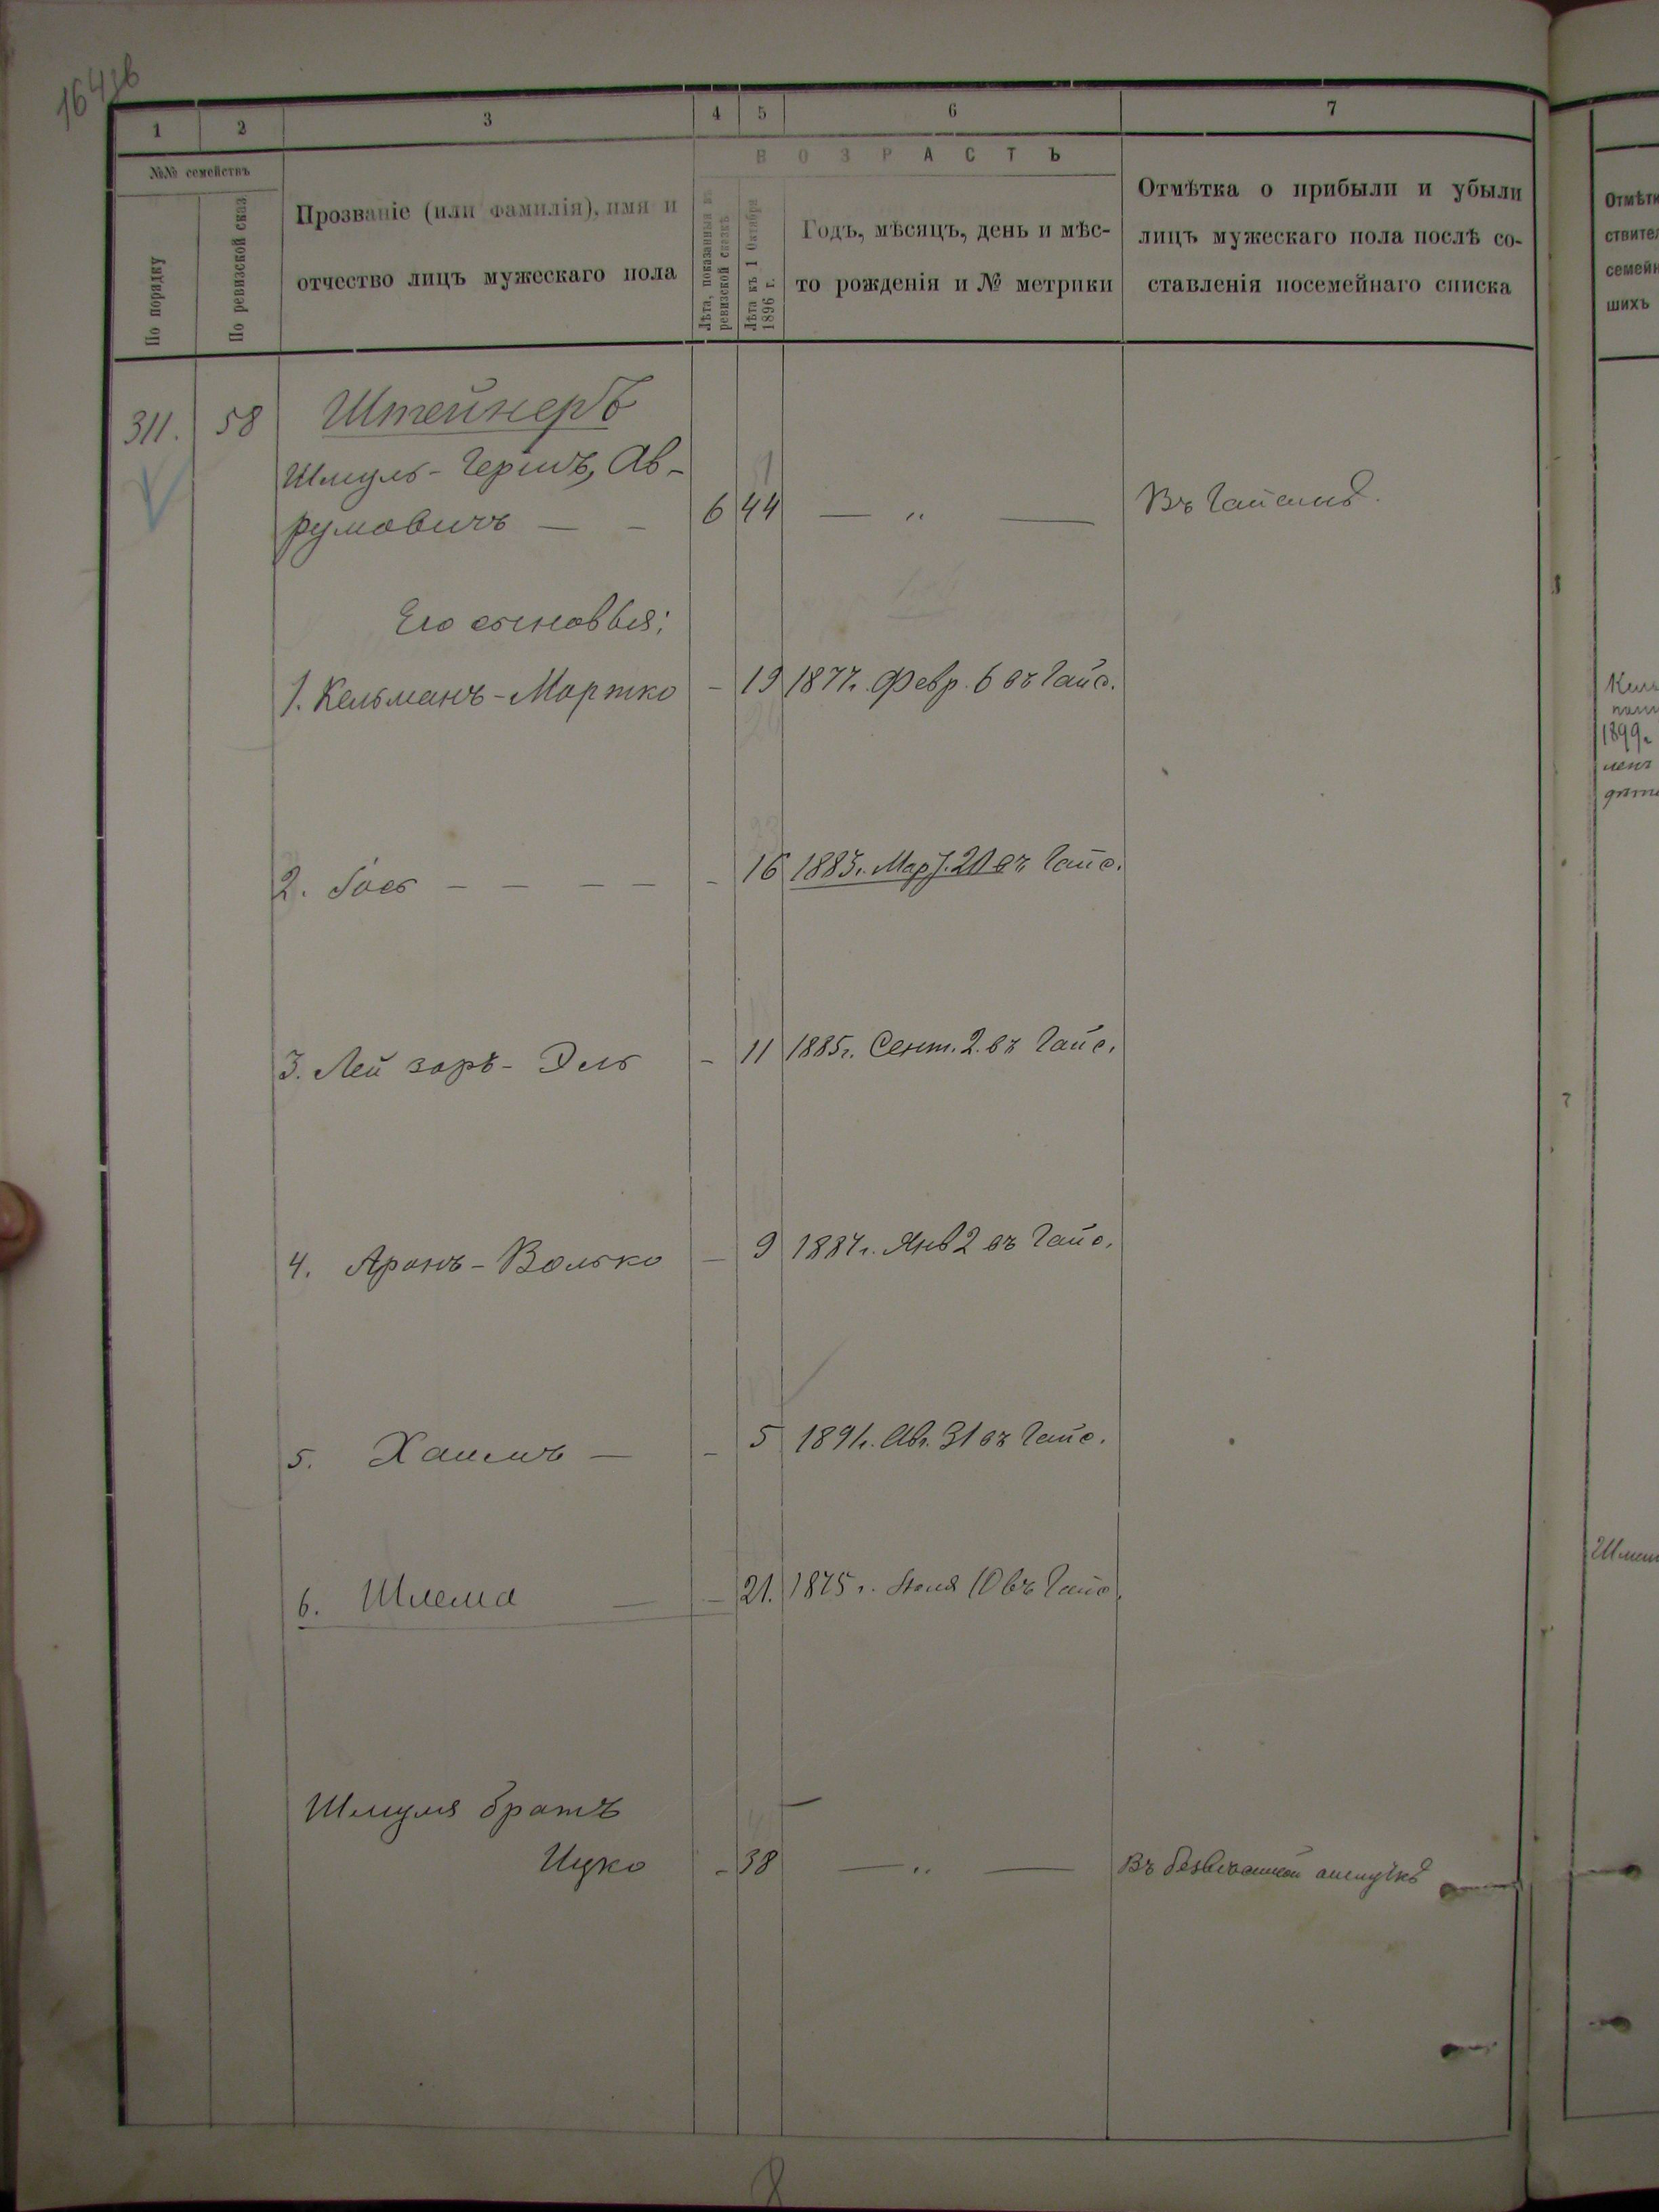 1 2 3 4 5 6 7
№№ семействъ
По порядку
По ревизской сказ
Прозваніе (или фамилія), имя и
отчество лицъ мужескаго пола
ВОЗРАСТЪ
Лѣта, показанныя въ
ревизской сказкѣ
Лѣта къ 1 Октября
1896 г.
Годъ, мѣсяцъ, день и мѣс-
то рожденія и № метрики
Отмѣтка о прибыли и убыли
лицъ мужескаго пола послѣ со-
ставленія посемейнаго списка
311. 58 Штейнеръ
Шмуль-Гершъ, Ав-
румовичъ — - 6 44 — „ — Въ Гайсинѣ.
Его сыновья:
1. Кельманъ-Мортко - 19 1877г. Февр. 6 въ Гайс.
2. Іось - - - - - 16 Мар 20 въ Гайс.
3. Лейзоръ-Эль - 11 1885г. Сент. 2. въ Гайс.
4. Аронъ-Волько - 9 1887г. Янв 2 въ Гайс.
5. Хаимъ — - 5 1891г. Авг. 31 въ Гайс.
6. Шлема — - 21. 1875 г. Іюля 10 въ Гайс.
Шмуля братъ
Ицко - 38 — „ — Въ отлучкѣ
Отмѣтк
ствител
семейн
шихъ
1899г